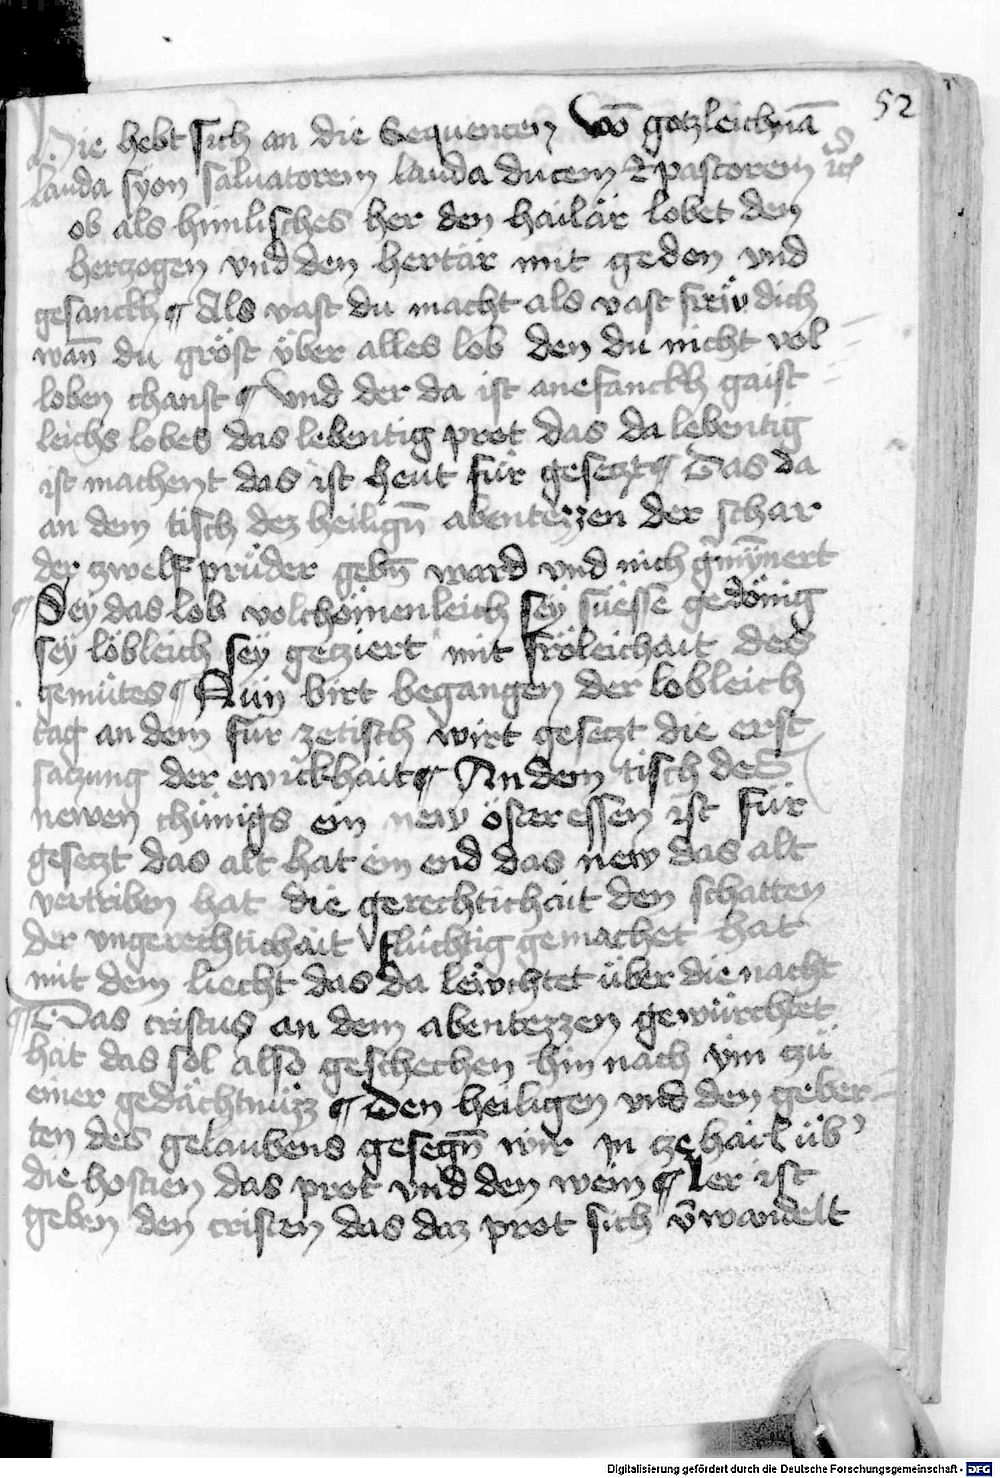 52
Hie hebt sich an die Sequencen Vō gotzleichnā
lauda syon saluatorem lauda ducem & pastorem
ob als himlisches her den hailär lobet den
herczogen vnd den hertär mit geden vnd
gesanckh ¶ Als vast du macht als vast frëw dich
wañ du gröst über alles lob den du nicht vol
loben chanst ¶ Vnd der da ist anefanckh gaist
leichs lobes das lebentig prot das da lebentig
ist machent das ist heut für geseczt ¶ Das da
an dem tisch dez heilign̄ abentezzen der schar
der zwelf prüder gebn̄ ward vnd nich
Seÿ das lob volchömenleich seÿ süesse gedönig
seÿ löbleich seÿ gecziert mit fröleichait des
gemütes ¶ Nün birt begangen der lobleich
tag an dem für zetisch wirt geseczt die erst
saczung der ewickhait ¶ An dem tisch des
newen chünigs ein new öster essen ist für
geseczt das alt hat ein end das new das alt
vertriben hat die gerechtichait den schatten
der vngerechtichait flüchtig gemachet hat
mit dem liecht das da lewchtet über die nacht
¶ Das cristus an dem abentezzen gewürchtet
hat das sol also geschechen hin nach vm czü
einer gedächtnüzz ¶ Den heiligen vnd den geber
ten des gelaubens gesegn̄ wir in cze hail üb'
die hostien das prot vnd den wein ¶ Ler ist
geben den cristen das daz prot sich v̄wandelt
Digitalisierung gefördert durch die Deutsche Forschungsgemeinschaft - DFG